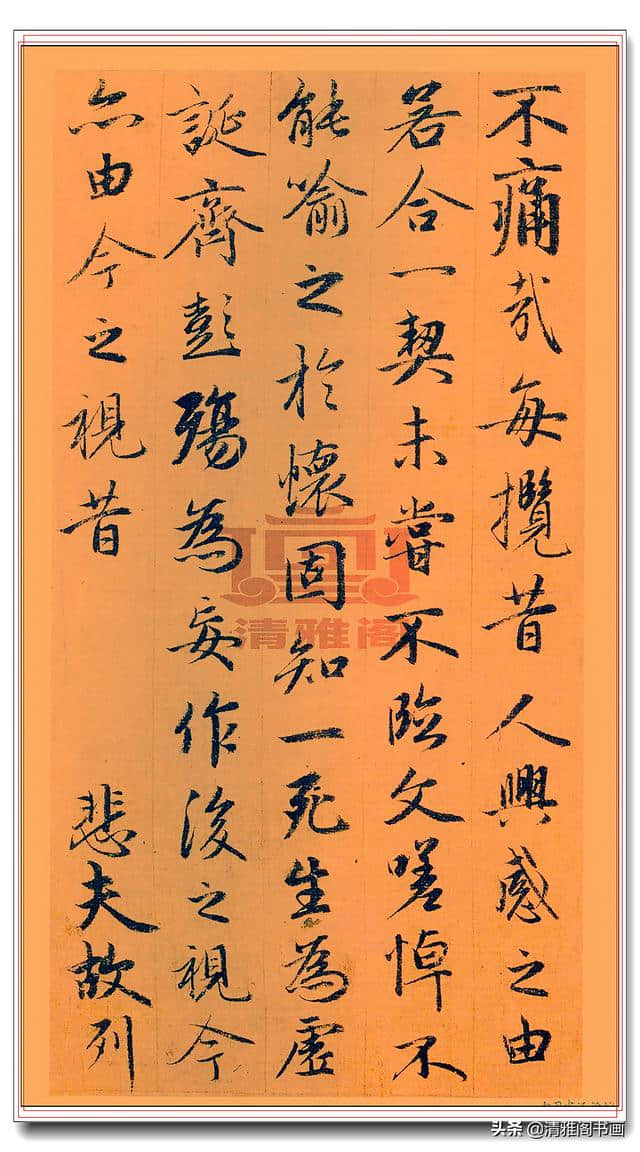 不痛哉每攬昔人興感之由
若合一契未嘗不臨文嗟悼不
能喻之於懷固知一死生為虛
誕齊彭殤為妄作後之視今
亦由今之視昔 悲夫故列
清雅阁
头条@清雅阁书画